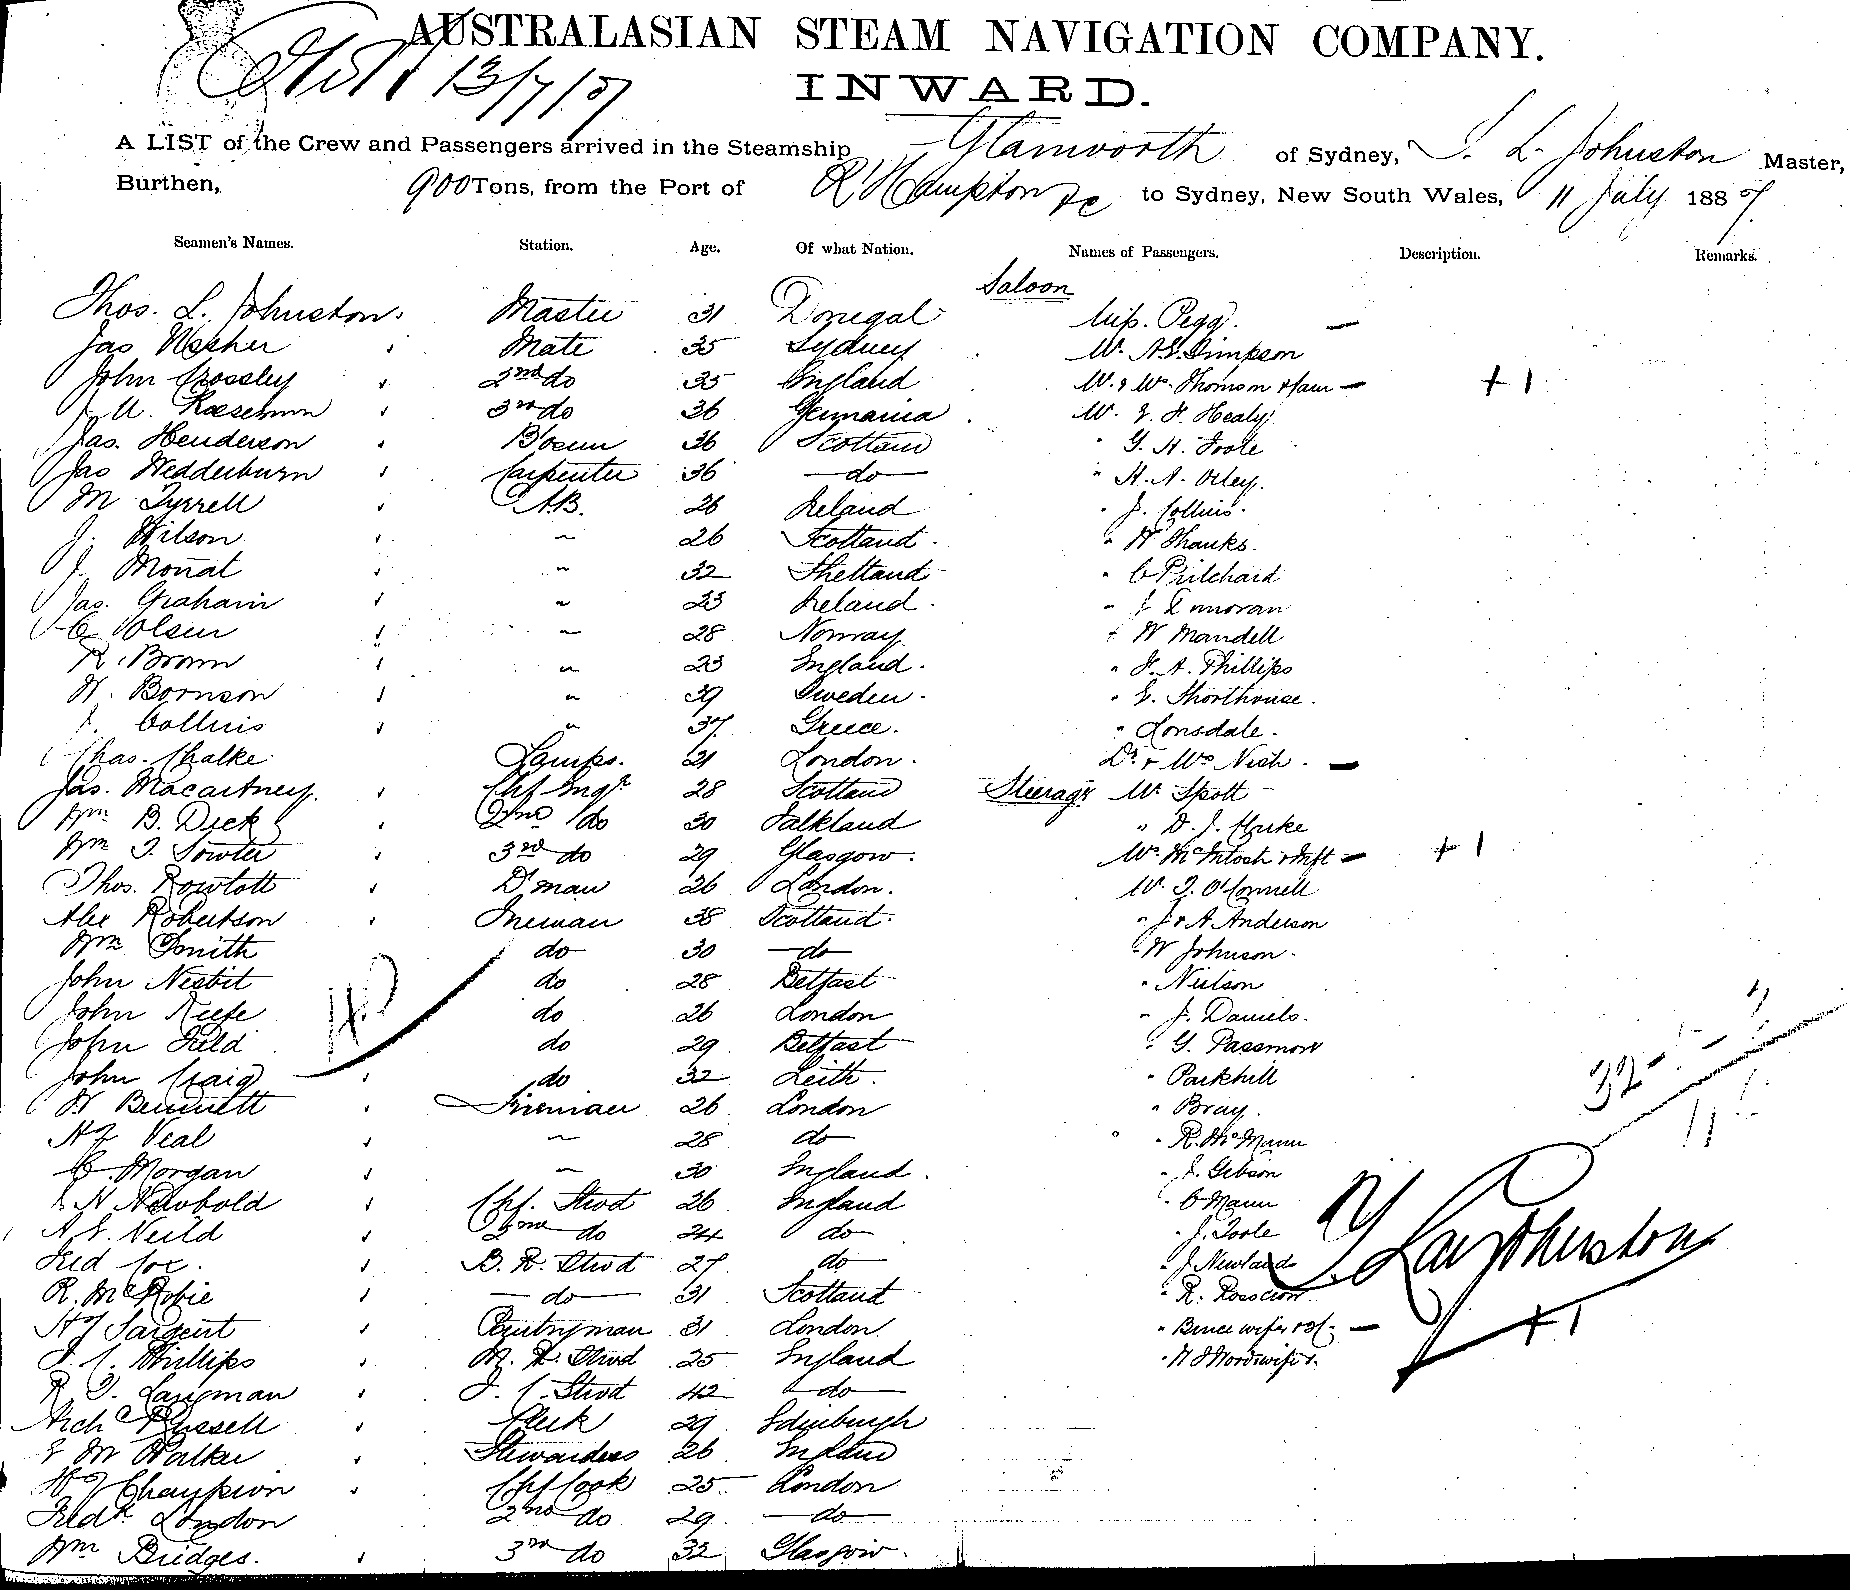 AUSTRALASIAN STEAM NAVIGATION COMPANY.
13/7/87
INWARD.
A LIST of the Crew and Passengers arrived in the Steamship Glamworth of Sydney, T. L. Johnston Master,
Burthen, 900 Tons, from the Port of R'Hampton &c to Sydney, New South Wales, 11 July 1887
Seamen's Names. Station. Age. Of what Nation. Names of Passengers. Description. Remarks.
Saloon
Thos. L. Johnston. Master 31 Donegal Miss. Pegg. —
Jas Mate 35 Sydney Mr. Simpson
John Crossley 2nd do 35 England Mr. & Mrs. Thomson — +1
3rd do 36 Germania Mr. E. H. Healy
Jas. Henderson Bosun 36 Scotland " G. H. Toole
Jas Wedderburn Carpenter 36 —do— " H. A.
M Tyrrell A.B. 26 Ireland " J. Collins.
J. Wilson " 26 Scotland. " W Shanks.
J. Mouat " 32 Shetland " C Pritchard
Jas. Graham " 23 Ireland. " J
C Olsen " 28 Norway " W Mandell
R. Brown " 23 England. " H. A. Phillips
H. Bornson " 39 Sweden. " E. Shorthouse.
J. Collins " 37 Greece. " Lonsdale.
Chas. Chalke Lamps. 21 London. Dr. & Mrs Nish. —
Jas. Macartney. Chf Engr 28 Scotland Steerage Mr Spott
Wm B. Dick 2nd do 30 Falkland " D. J. Clarke
Wm T. Sowter 3rd do 29 Glasgow. Mrs. McIntosh & Inft — +1
Thos. Rowlatt D'man 26 London. Mr. T. O'Connell
Alex Robertson Fireman 38 Scotland. " J & A Anderson
Wm Smith do 30 —do— " W Johnson.
John Nesbit do 28 Belfast " Neilson
John Keefe do 26 London " J. Daniels.
John Field do 29 Belfast " G. Passmore
John Craig do 32 Leith. " Parkhill
W Bennett Fireman 26 London " Bray.
Hy Veal " 28 do " R. McMann
C. Morgan " 30 England. " J. Gibson
N Newbold Chf. Stwd 26 England " C Mann
A. E. Neild 2nd do 24 do " J. Toole
Fred Cox. B. R. Stwd 27 do " J. Newland
R. McRobie —do— 31 Scotland " R.
Hy Sargent Pantryman 31 London " Bruce wife
J. C. Phillips M. R. Stwd 25 England
R. T. Langman F. C. Stwd 42 do
Archd Russell Clerk 29 Edinburgh
E M Walker Stewardess 26 England
Hy Champion Chf Cook 25 London
Fredk London 2nd do 29 —do—
Wm Bridges. 3rd do 32 Glasgow.
32
+1